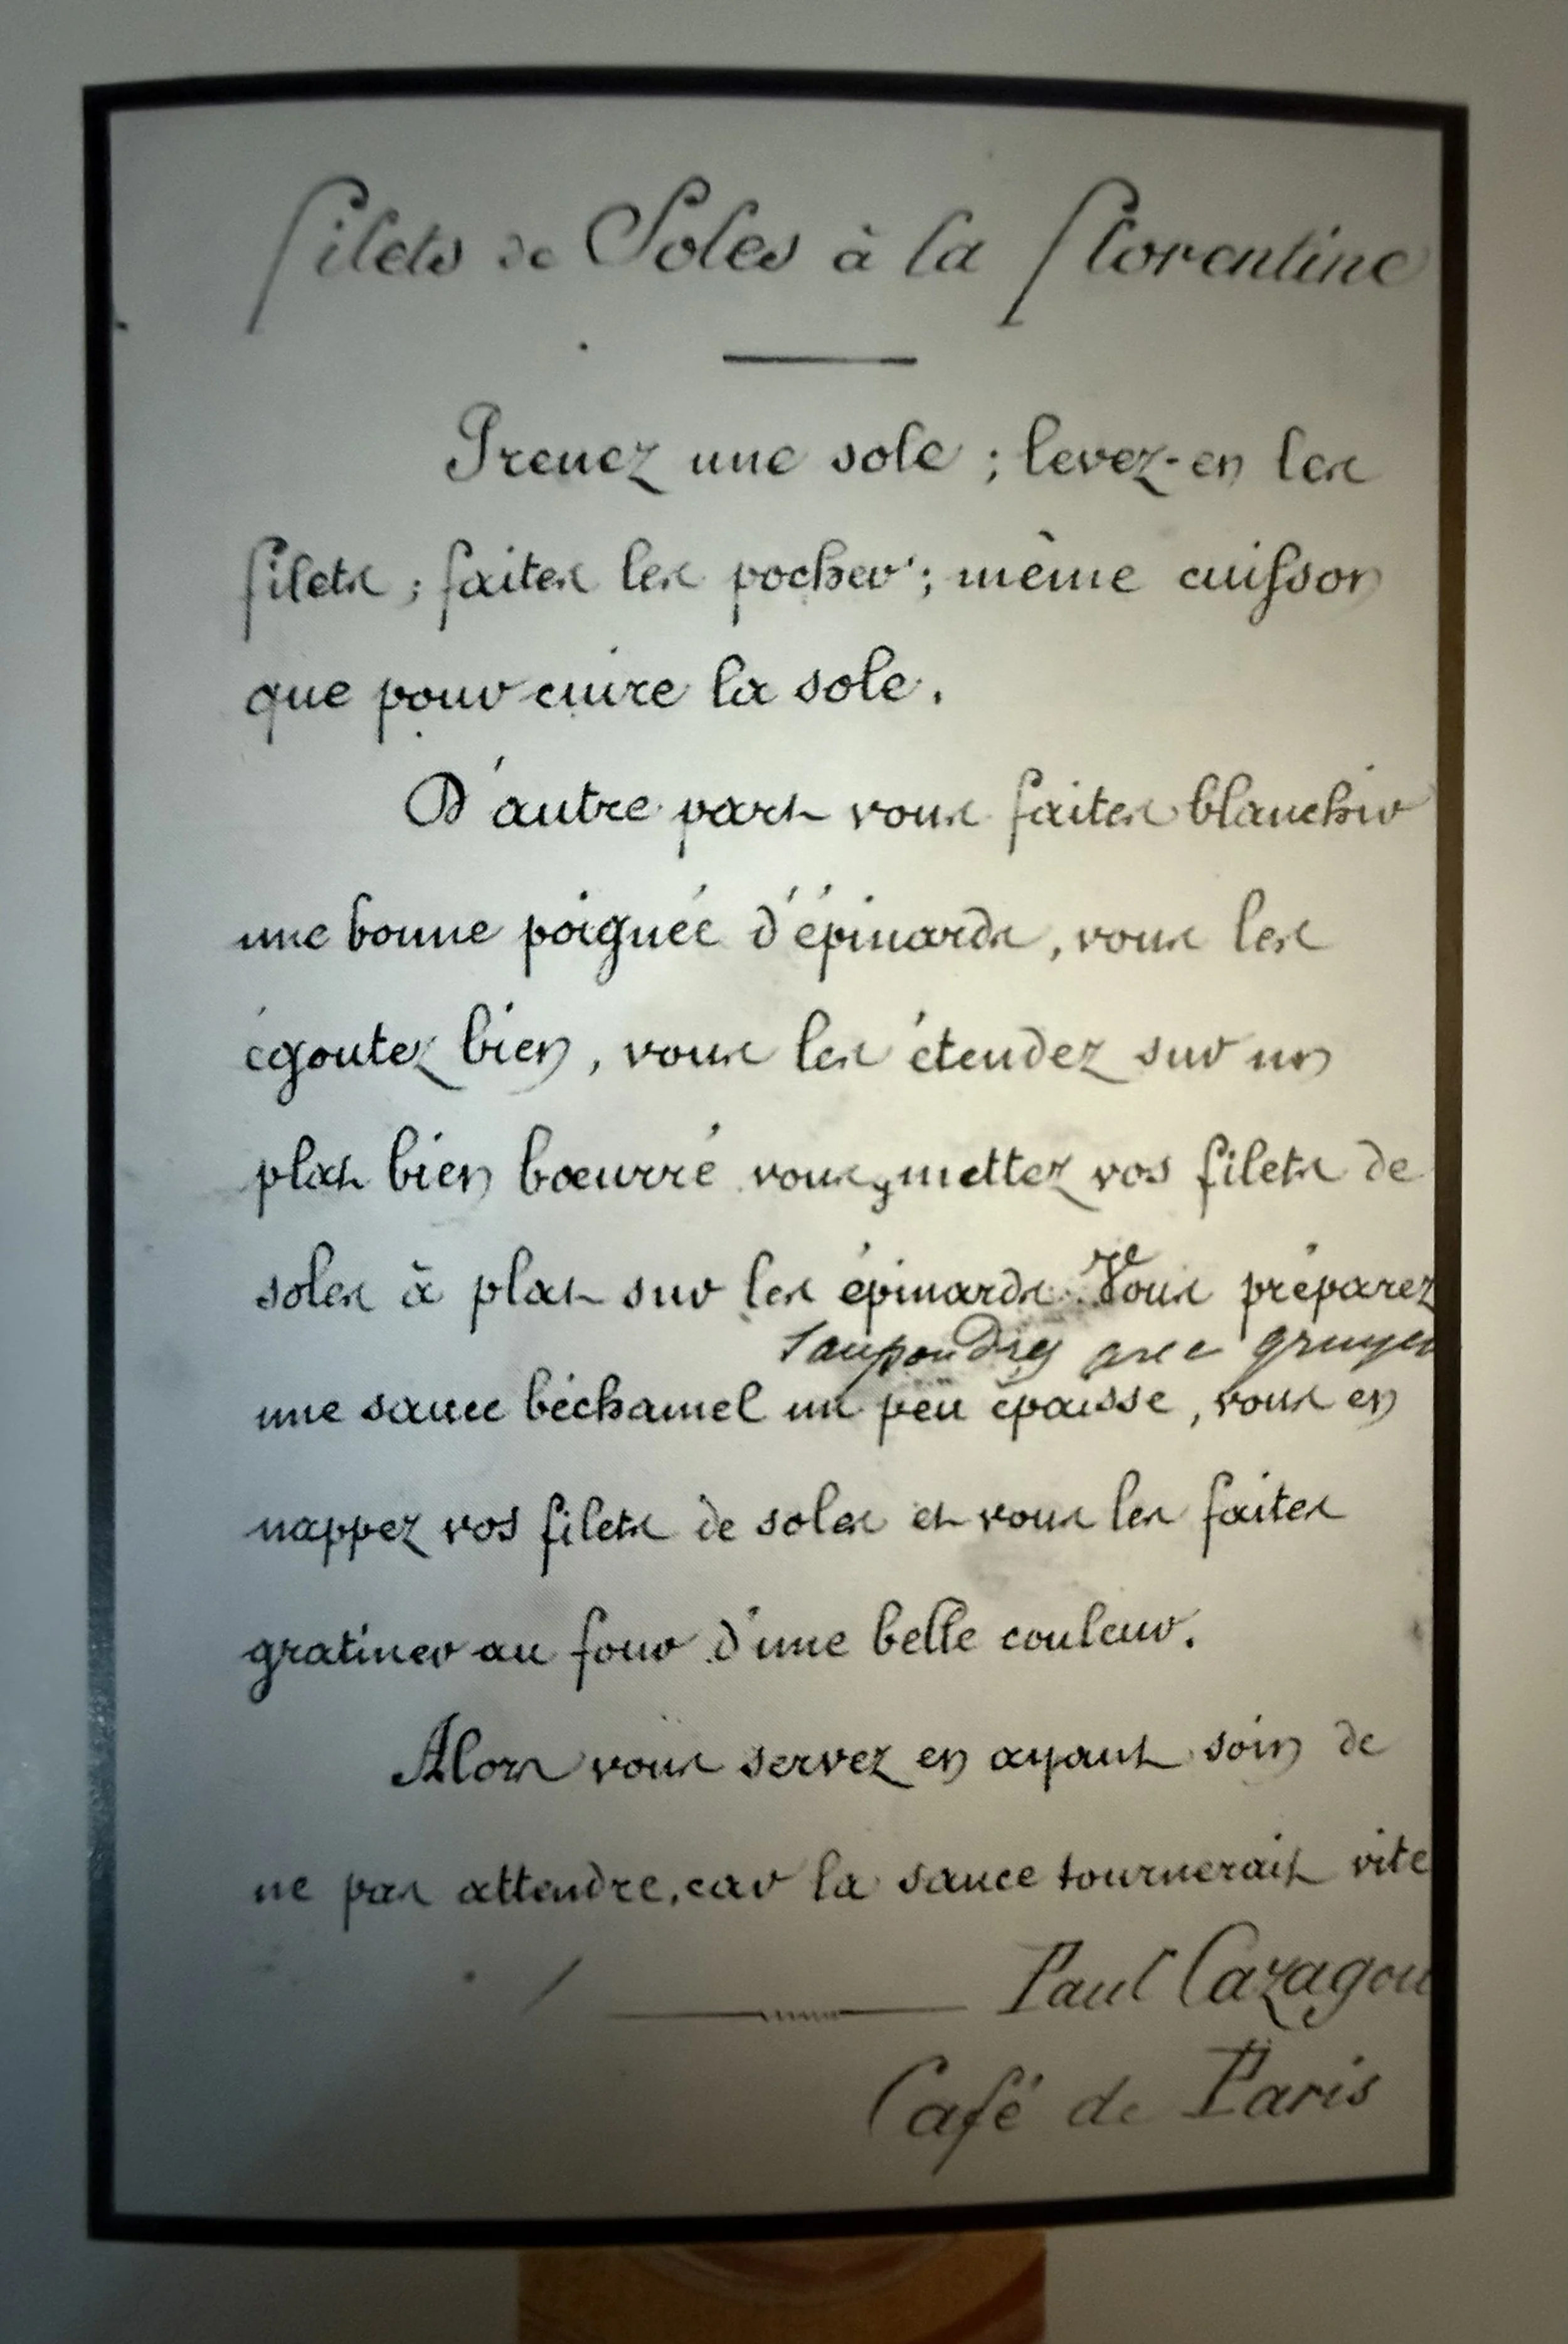 Filets de Soles à la Florentine
Prenez une sole ; levez-en les
filets ; faites les pocher ; même cuisson
que pour cuire la sole.
D'autre part vous faites blanchir
une bonne poignée d'épinards, vous les
égoutez bien, vous les étendez sur un
plat bien bœurré vous y mettez vos filets de
soles à plat sur les épinards. Vous préparez
saupoudrez avec gruyer
une sauce béchamel un peu épaisse, vous en
nappez vos filets de soles et vous les faites
gratiner au four d'une belle couleur.
Alors vous servez en ayant soin de
ne pas attendre, car la sauce tournerait vite
Paul Cazagou
Café de Paris